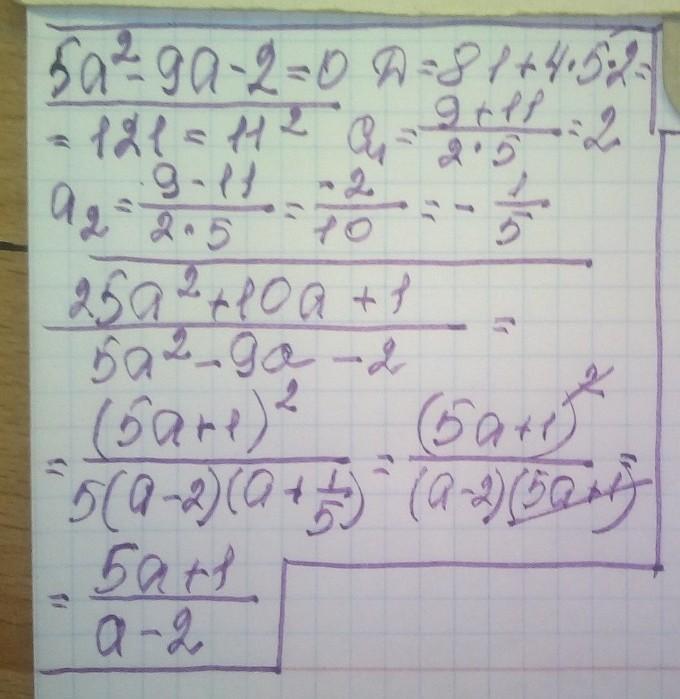 5a² - 9a - 2 = 0 D = 81 + 4·5·2 =
= 121 = 11² a₁ = (9 + 11)/(2·5) = 2
a₂ = (9 - 11)/(2·5) = -2/10 = - 1/5
(25a² + 10a + 1)/(5a² - 9a - 2) =
= (5a+1)²/(5(a-2)(a+1/5)) = (5a+1)²/((a-2)(5a+1)) =
= (5a+1)/(a-2)